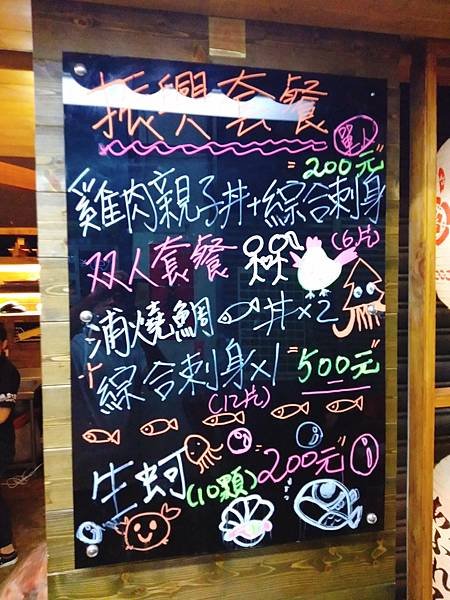 振興套餐
單人
"200元"
雞肉親子丼+綜合刺身
双人套餐 (6片)
浦燒鯛 丼×2
+綜合刺身×1 "500元"
(12片)
生蚵(10顆) "200元"